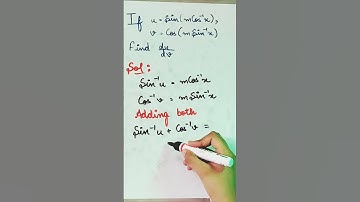 If u = Sin(mCos⁻¹x),
v = Cos(mSin⁻¹x)
Find du/dv
Sol:
Sin⁻¹u = mCos⁻¹x
Cos⁻¹v = mSin⁻¹x
Adding both
Sin⁻¹u + Cos⁻¹v =